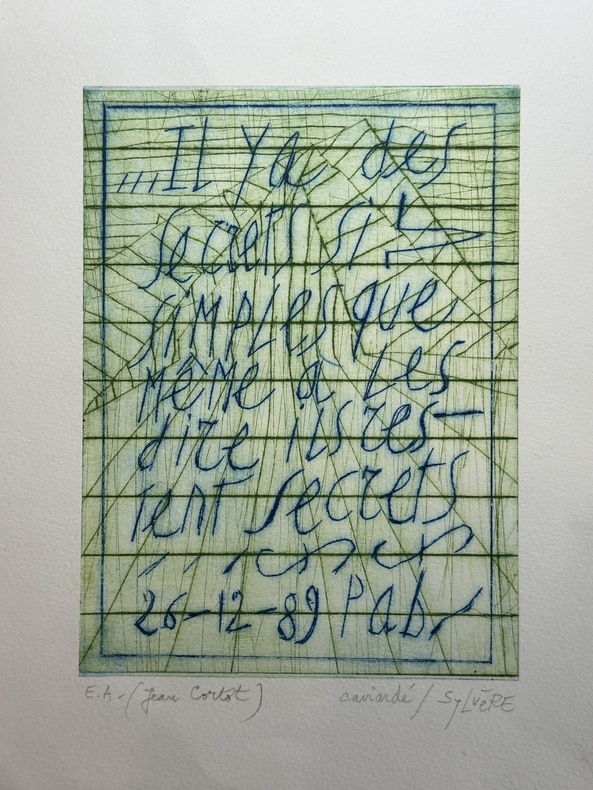 ,,,,Il y a des
secrets si
simples que
même à les
dire ils res-
tent secrets
26-12-89 Pab
E.A. (Jean Cortot) caviardé / SYLVÈRE